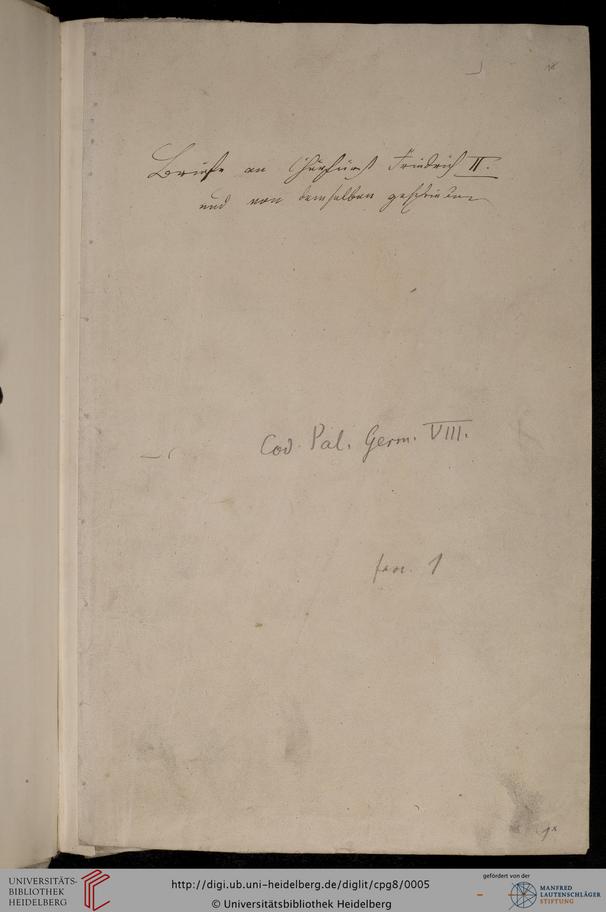 Briefe an Churfürst Friedrich II.
und von demselben geschrieben
Cod. Pal. Germ. VIII.
fasc. 1
1*
UNIVERSITÄTS-
BIBLIOTHEK
HEIDELBERG
http://digi.ub.uni-heidelberg.de/diglit/cpg8/0005
© Universitätsbibliothek Heidelberg
gefördert von der
MANFRED
LAUTENSCHLÄGER
STIFTUNG